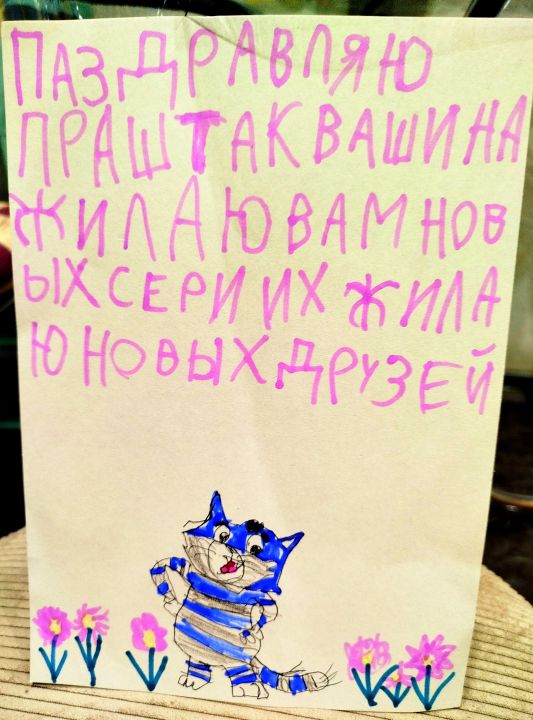 ПАЗДРАВЛЯЮ
ПРАШТАКВАШИНА
ЖИЛАЮ ВАМ НОВ
ЫХ СЕРИИХ ЖИЛА
Ю НОВЫХ ДРУЗЕЙ